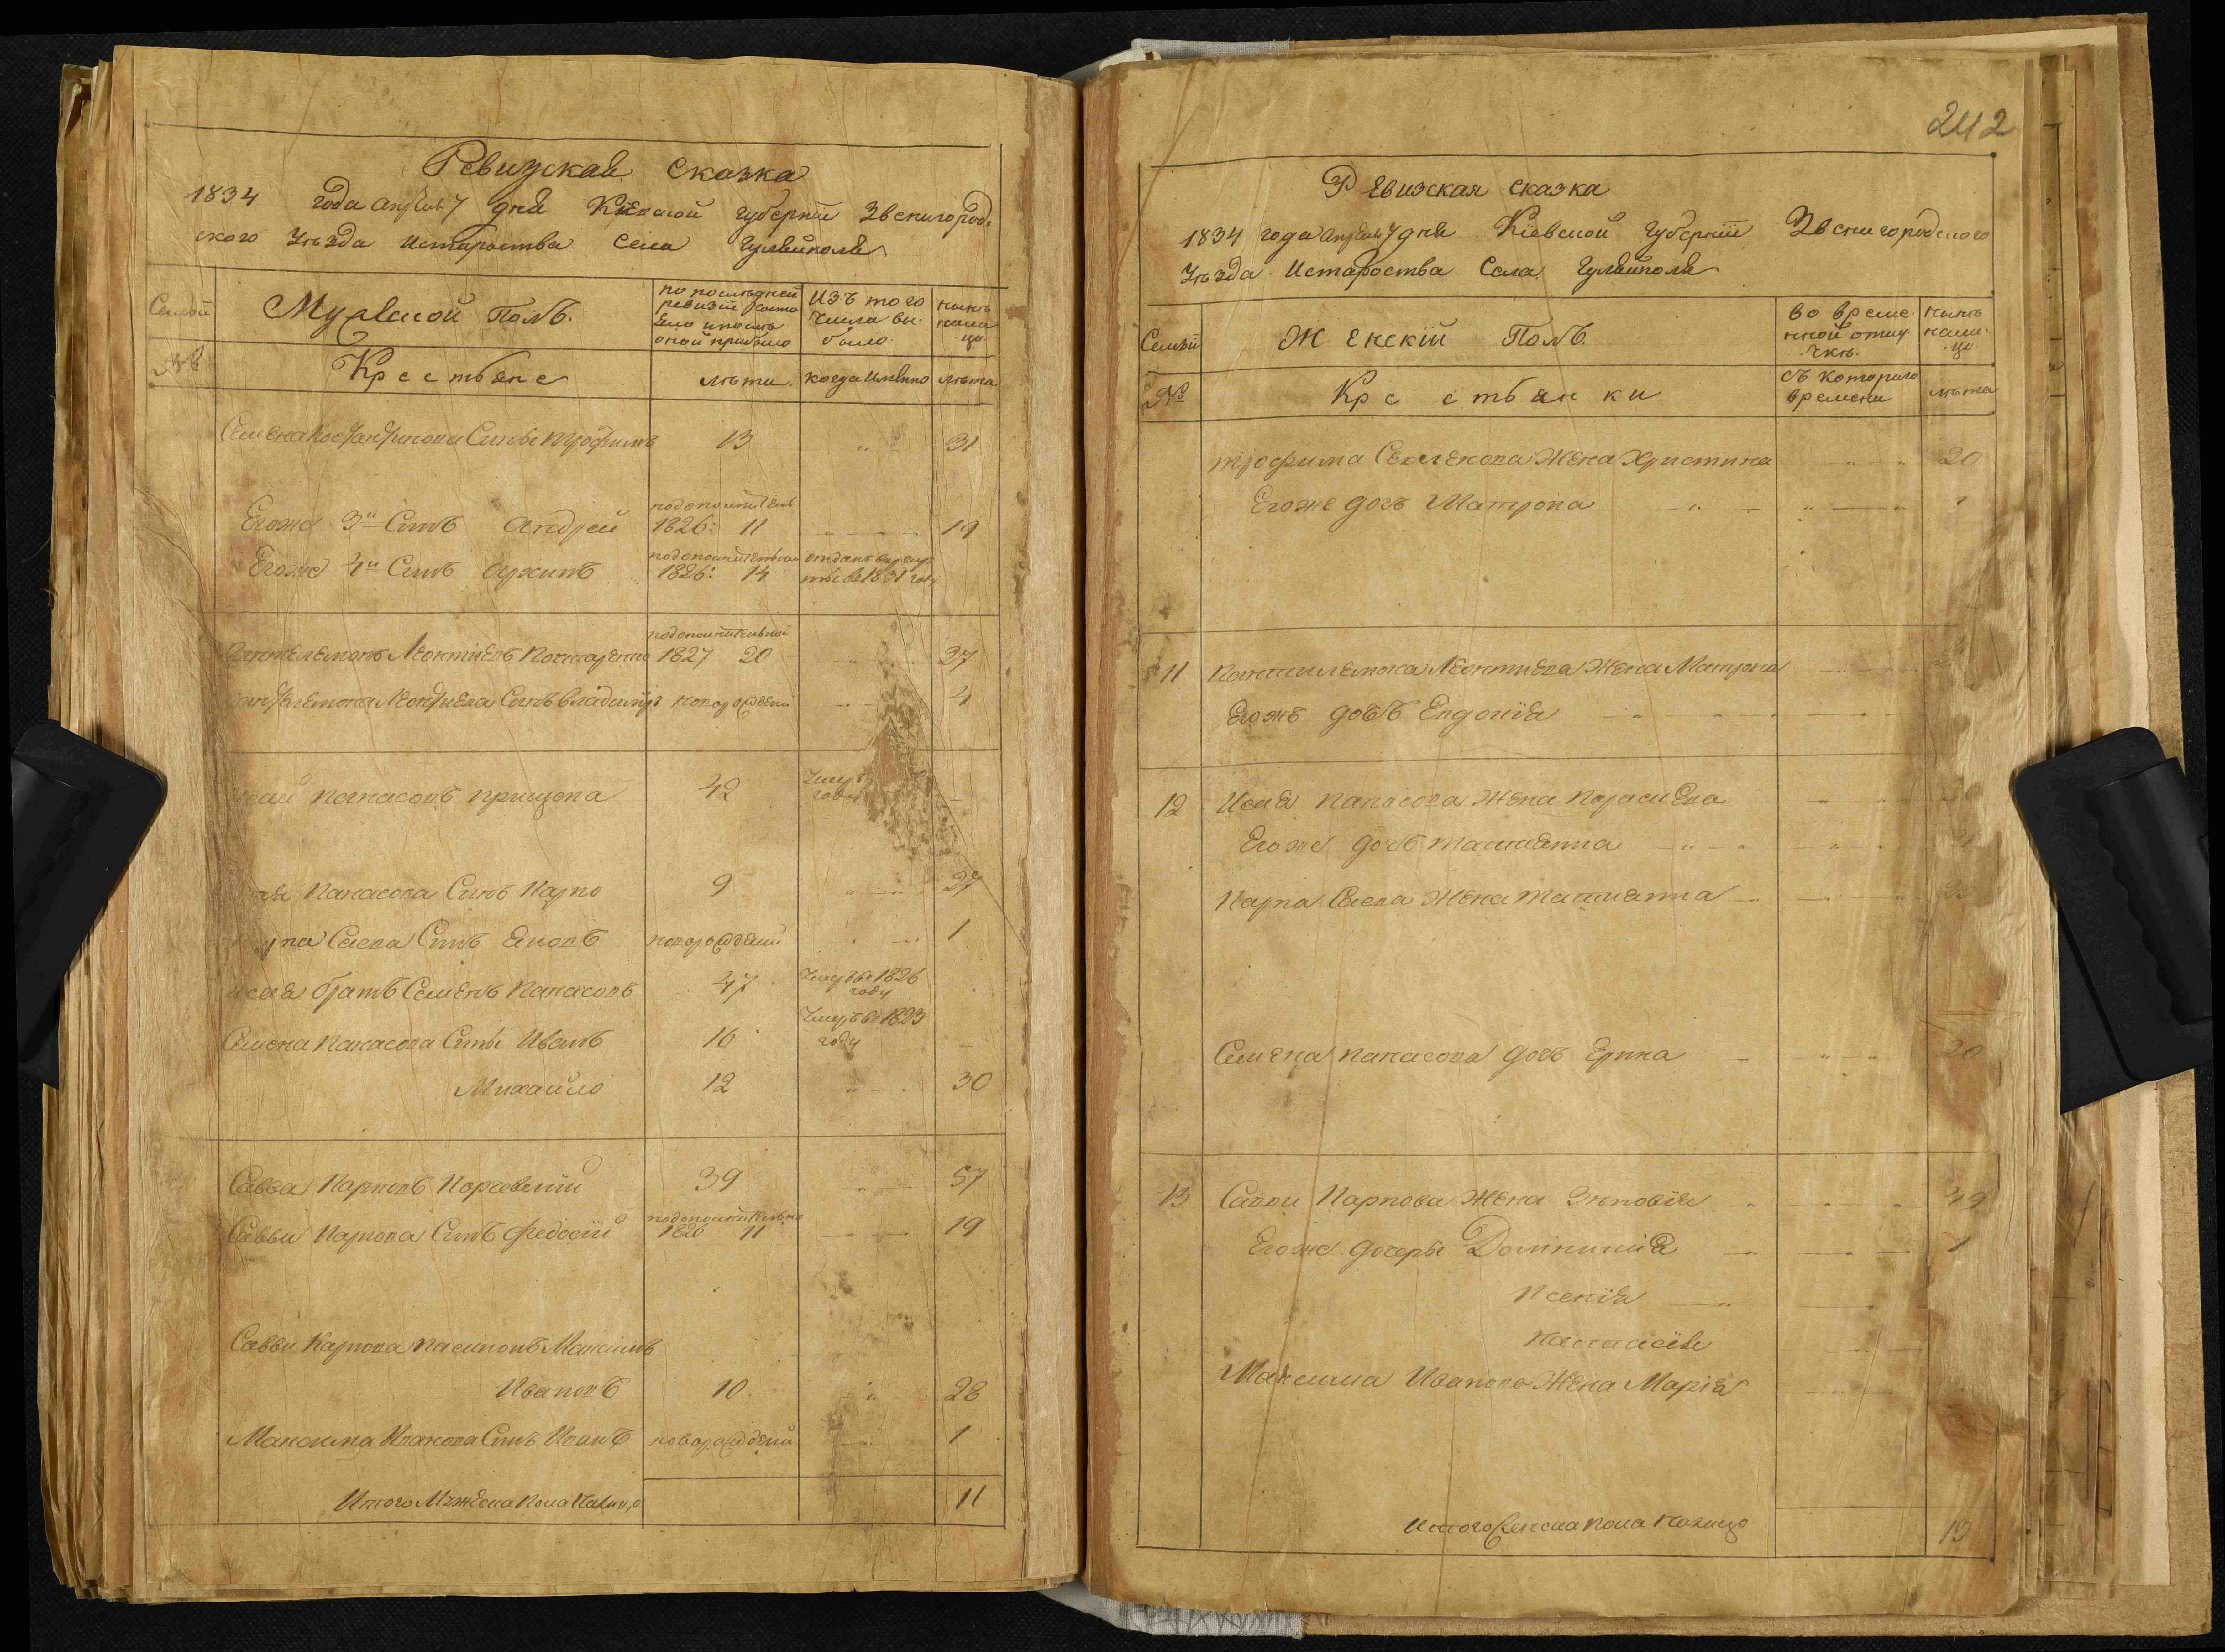 Ревизская сказка
1834 года апреля 7 дня Киевской губернїи Звенигород.
ского Уѣзда Истароства Села Гуляйполя
Семьи
Мужской Полъ.
по последней ревизїи состояло и после оной прибыло
Изъ того числа вы. было.
нынѣ нали цо
№
Крестьяне
лѣта.
когда имянно
лѣта
Семена Костантинова Сыны трофимъ 13 31
Егоже 3й Сынъ андрей 1826: 11 19
Егоже 4й Сынъ архипъ 1826: 14 отданъ врекруты въ 1831 году
Пантелемонъ Леонтиевъ 1827 20 27
Пантелемона Леонтиева Сынъ владимиръ новорожденй 4
Панасовъ прищепа 42 Умеръ году
Панасова Сынъ Карпо 9 27
Карпа Саева Сынъ яковъ новорожденй 1
исая братъ Семенъ Панасовъ 47 Умеръ въ 1826 году
Семена Панасова Сыны Иванъ 16 Умеръ въ 1823 году
Михайло 12 30
Савва Карповъ Корчевскїй 39 57
Саввы Карпова Сынъ Федосїй 1826 11 19
Саввы Карпова пасынокъ Максимъ
Ивановъ 10. 28
Максима Иванова Сынъ Иванъ новорожденй 1
Итого Мужеска пола налицо 11
242
Ревизская сказка
1834 года апреля 7 дня Кїевской Губернїи Звенигородского
Уѣзда Истароства Села Гуляйполя
Семьи
Женскїй Полъ.
во време. нной отлу. чкѣ.
нынѣ нали. цо
№
Крестьянки
съ которого времени
лѣта
трофима Семенова жена Христина 20
Егоже дочъ Матрона 1
11 Пантилемона Леонтиева жена Матрона
Егожъ дочъ Евдокїя
12 Исая Панасова жена Параскева 30
Егоже дочъ татиянна
Карпа Саева жена татиянна
Семена панасова дочъ Ерина 20
13 Саввы Карпова жена Зѣновїя 49
Егоже дочеры Доминикїя 1
Ксенїя
Настасїя
Максима Иванова жена Марїя
Итого женска пола налицо 13